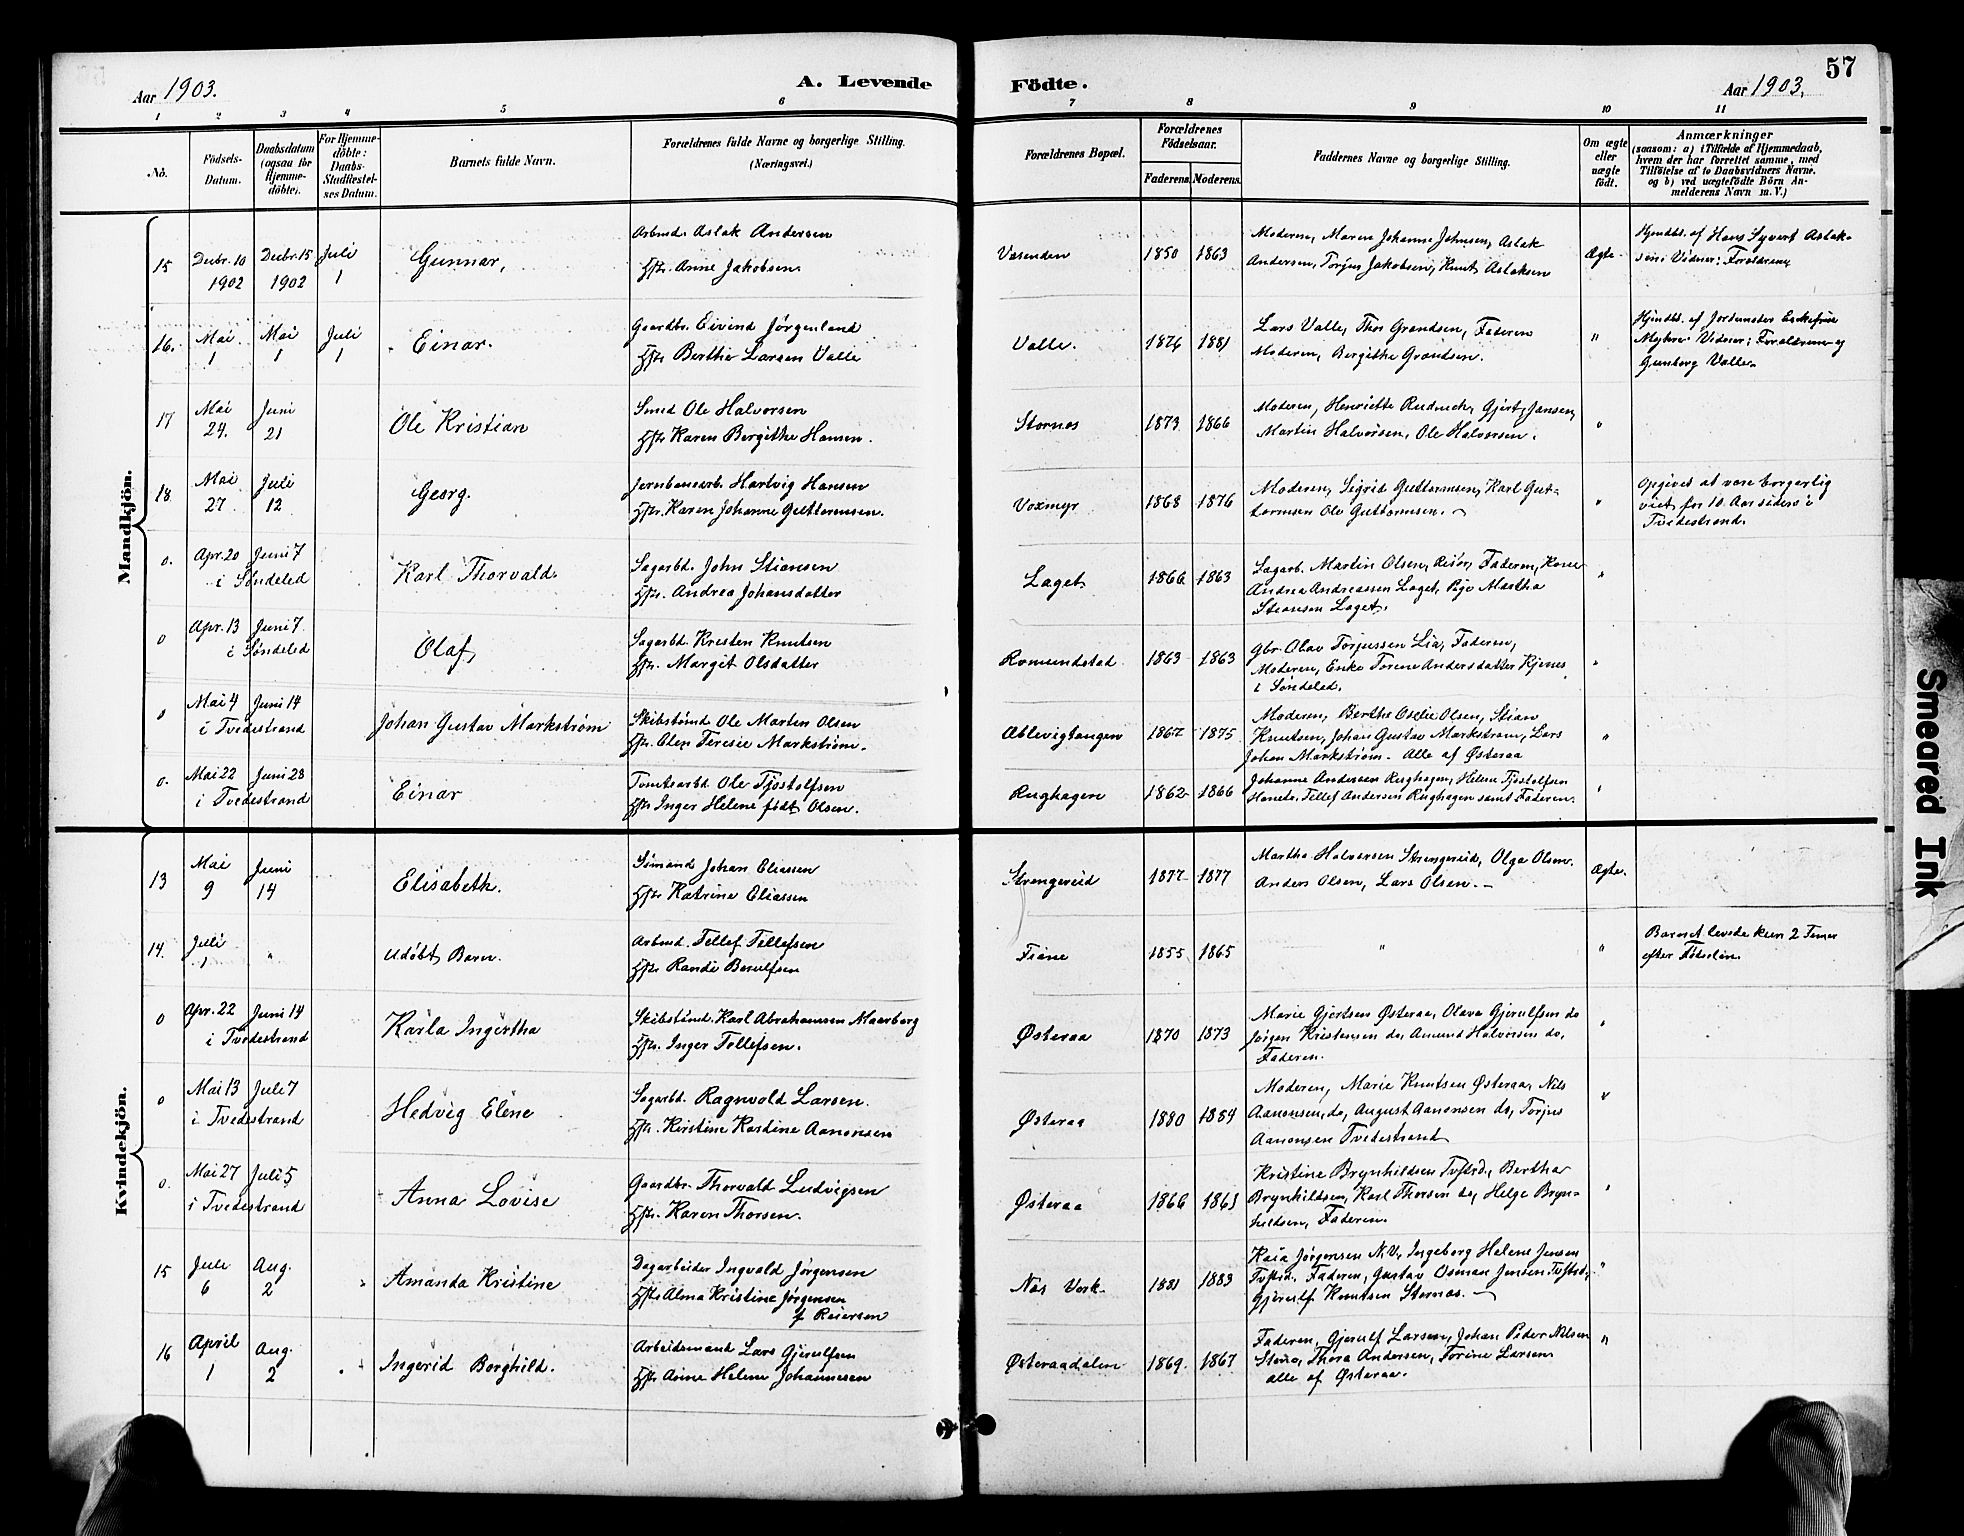 57
Aar 1903.
A. Levende
Födte.
Aar 1903.
1 2 3 4 5 6 7 8 9 10 11
No.
Födsels-
Datum.
Daabsdatum
(ogsaa för
Hjemme-
döbte).
For Hjemme-
döbte:
Daabs-
Stadfæstel-
ses Datum.
Barnets fulde Navn.
Forældrenes fulde Navne og borgerlige Stilling.
(Næringsvei.)
Forældrenes Bopæl.
Forældrenes
Födselsaar.
Faderens
Moderens.
Faddernes Navne og borgerlige Stilling.
Om ægte
eller
uægte
födt.
Anmærkninger
(saasom: a) i Tilfælde af Hjemmedaab,
hvem der har forrettet samme, med
Tilföielse af to Daabsvidners Navne.
og b) ved uægtefödte Börn An-
melderens Navn m. V.)
Mandkjön.
15
Decbr. 10
1902
Decbr. 15
1902
Juli
1
Gunnar,
Arbmd. Aslak Andersen
Hstr. Anne Jakobsen
Vasenden
1850
1863
Moderen, Maren Johanne Johnsen, Aslak
Andersen, Torjus Jakobsen, Knut Aslaksen
Ægte
Hjmdbt. af Hans Syvert Aslak-
sen. Vidner: Forældrene
16.
Mai
1
Mai
1
Juli
1
Einar.
Gaardbr. Eivind Jørgenland
Hstr Berthe Larsen Valle
Valle.
1876
1881
Lars Valle, Thor Grandsen, Faderen
Moderen, Bergithe Grandsen.
"
Hjmdbt. af Jordemoder Enkefrue
Myhre. Vidner: Forældrene og
Gunborg Valle.
17
Mai
24.
Juni
21
Ole Kristian
Smed Ole Halvorsen
Hstr Karen Bergithe Hansen.
Stornes
1873
1866
Moderen, Henriette Rudnech, Gjert Jansen,
Martin Halvorsen, Ole Halvorsen.
"
18
Mai
27
Juli
12
Georg.
Jernbanearb. Hartvig Hansen
Hstr. Karen Johanne Guttormsen.
Voxmyr
1868
1876
Moderen, Sigrid Guttormsen, Karl Gut-
tormsen Ole Guttormsen.
"
Opgivet at være borgerlig
viet for 10 Aar siden i
Tvedestrand.
0.
Apr. 20
Juni 7
i Søndeled
Karl Thorvald.
Sagarbd. John Stiansen
Hstr. Andrea Johansdatter
Laget
1866
1863
Sagarb. Martin Olsen, Risør, Faderen, Kone
Andrea Andreassen Laget, Pige Martha
Stiansen Laget.
"
0
Apr. 13
Juni 7
i Søndeled
Olaf,
Sagarbd. Kresten Knutsen
Hstr. Margit Olsdatter
Romundstad
1863
1863
gbr. Olav Torjussen Lia, Faderen,
Moderen, Enke Torine Andersdatter Kjenes
i Søndeled.
"
0
Mai 4
Juni 14
i Tvedestrand
Johan Gustav Markstrøm
Skibstømd. Ole Marten Olsen
Hstr. Olen Teresie Markstrøm.
Ablevigtangen
1867
1875
Moderen, Berthe Oselie Olsen, Stian
Knutsen, Johan Gustav Markstrøm, Lars
Johan Markstrøm. Alle af Østeraa
"
0.
Mai 22
Juni 28
i Tvedestrand
Einar
Tomtearbd. Ole Tjøstolfsen
Hstr Inger Helene født Olsen.
Rughagen
1862
1866
Johanne Andersen Rughagen, Helene Tjøstolfsen
Tellef Andersen Rughagen samt Faderen.
"
Kvindekjön.
13
Mai
9
Juni
14
Elisabeth.
Sømand Johan Eliassen
Hstr Katrine Eliassen
Strengereid
1877
1877
Martha Halvorsen Strengereid, Olga Olsen.
Anders Olsen, Lars Olsen.
Ægte.
14.
Juli
1
"
Udøbt Barn.
Arbmd. Tellef Tellefsen
Hstr Randi Berulfsen
Fiane
1855
1865
"
"
Barnet levede kun 2 Timer
efter Fødselen.
0
Apr. 22
Juni 14
i Tvedestrand
Karla Ingertha
Skibstømd. Karl Abrahamsen Maarberg
Hstr. Inger Tellefsen.
Østeraa
1870
1873
Marie Gjertsen Østeraa, Olava Gjerulfsen do
Jørgen Kristensen do, Amund Halvorsen do,
Faderen.
"
0
Mai 13
Juli 7
i Tvedestrand
Hedvig Eline
Sagarbd. Ragnvald Larsen.
Hstr. Kirstine Kardine Aanonsen
Østeraa
1880
1884
Moderen, Marie Knutsen Østeraa, Nils
Aanonsen, do, August Aanonsen do, Torjus
Aanonsen Tvedestrand
"
0.
Mai 27
Juli 5
i Tvedestrand
Anna Lovise
Gaardbr. Thorvald Ludvigsen
Hstr. Karen Thorsen.
Østeraa
1866
1861
Kristine Brynhildsen Tvstrd., Bertha
Brynhildsen, Karl Thorsen do, Helge Bryn-
hildsen, Faderen.
"
15
Juli
6
Aug.
2
Amanda Kristine
Dagarbeider Ingvald Jørgensen
Hstr Alma Kristine Jørgensen
f. Reiersen
Næs Verk
1881
1883
Kaia Jørgensen N.V., Ingeborg Helene Jensen
Tvstrd. Faderen, Gustav Osman Jensen Tvstrd,
Gjerulf Knutsen Stornæs.
"
16
April
1
Aug.
2
Ingerid Borghild.
Arbeidsmand Lars Gjerulfsen
Hstr Anne Helene Johannesen
Østeraadalen
1869.
1867
Faderen, Gjerulf Larsen, Johan Peder Nilsen
Thora Andersen, Torine Larsen
alle af Østeraa.
"
Smeared Ink